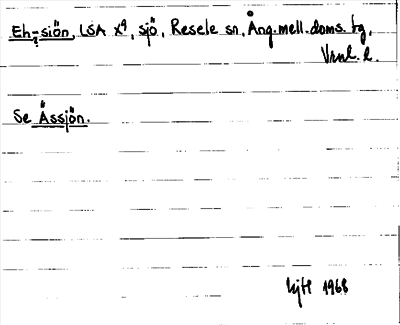 Eh-siön, LSA X9, sjö, Resele sn, Ång.mell.doms. fg,
Vrnl. l.
Se Ässjön.
1968